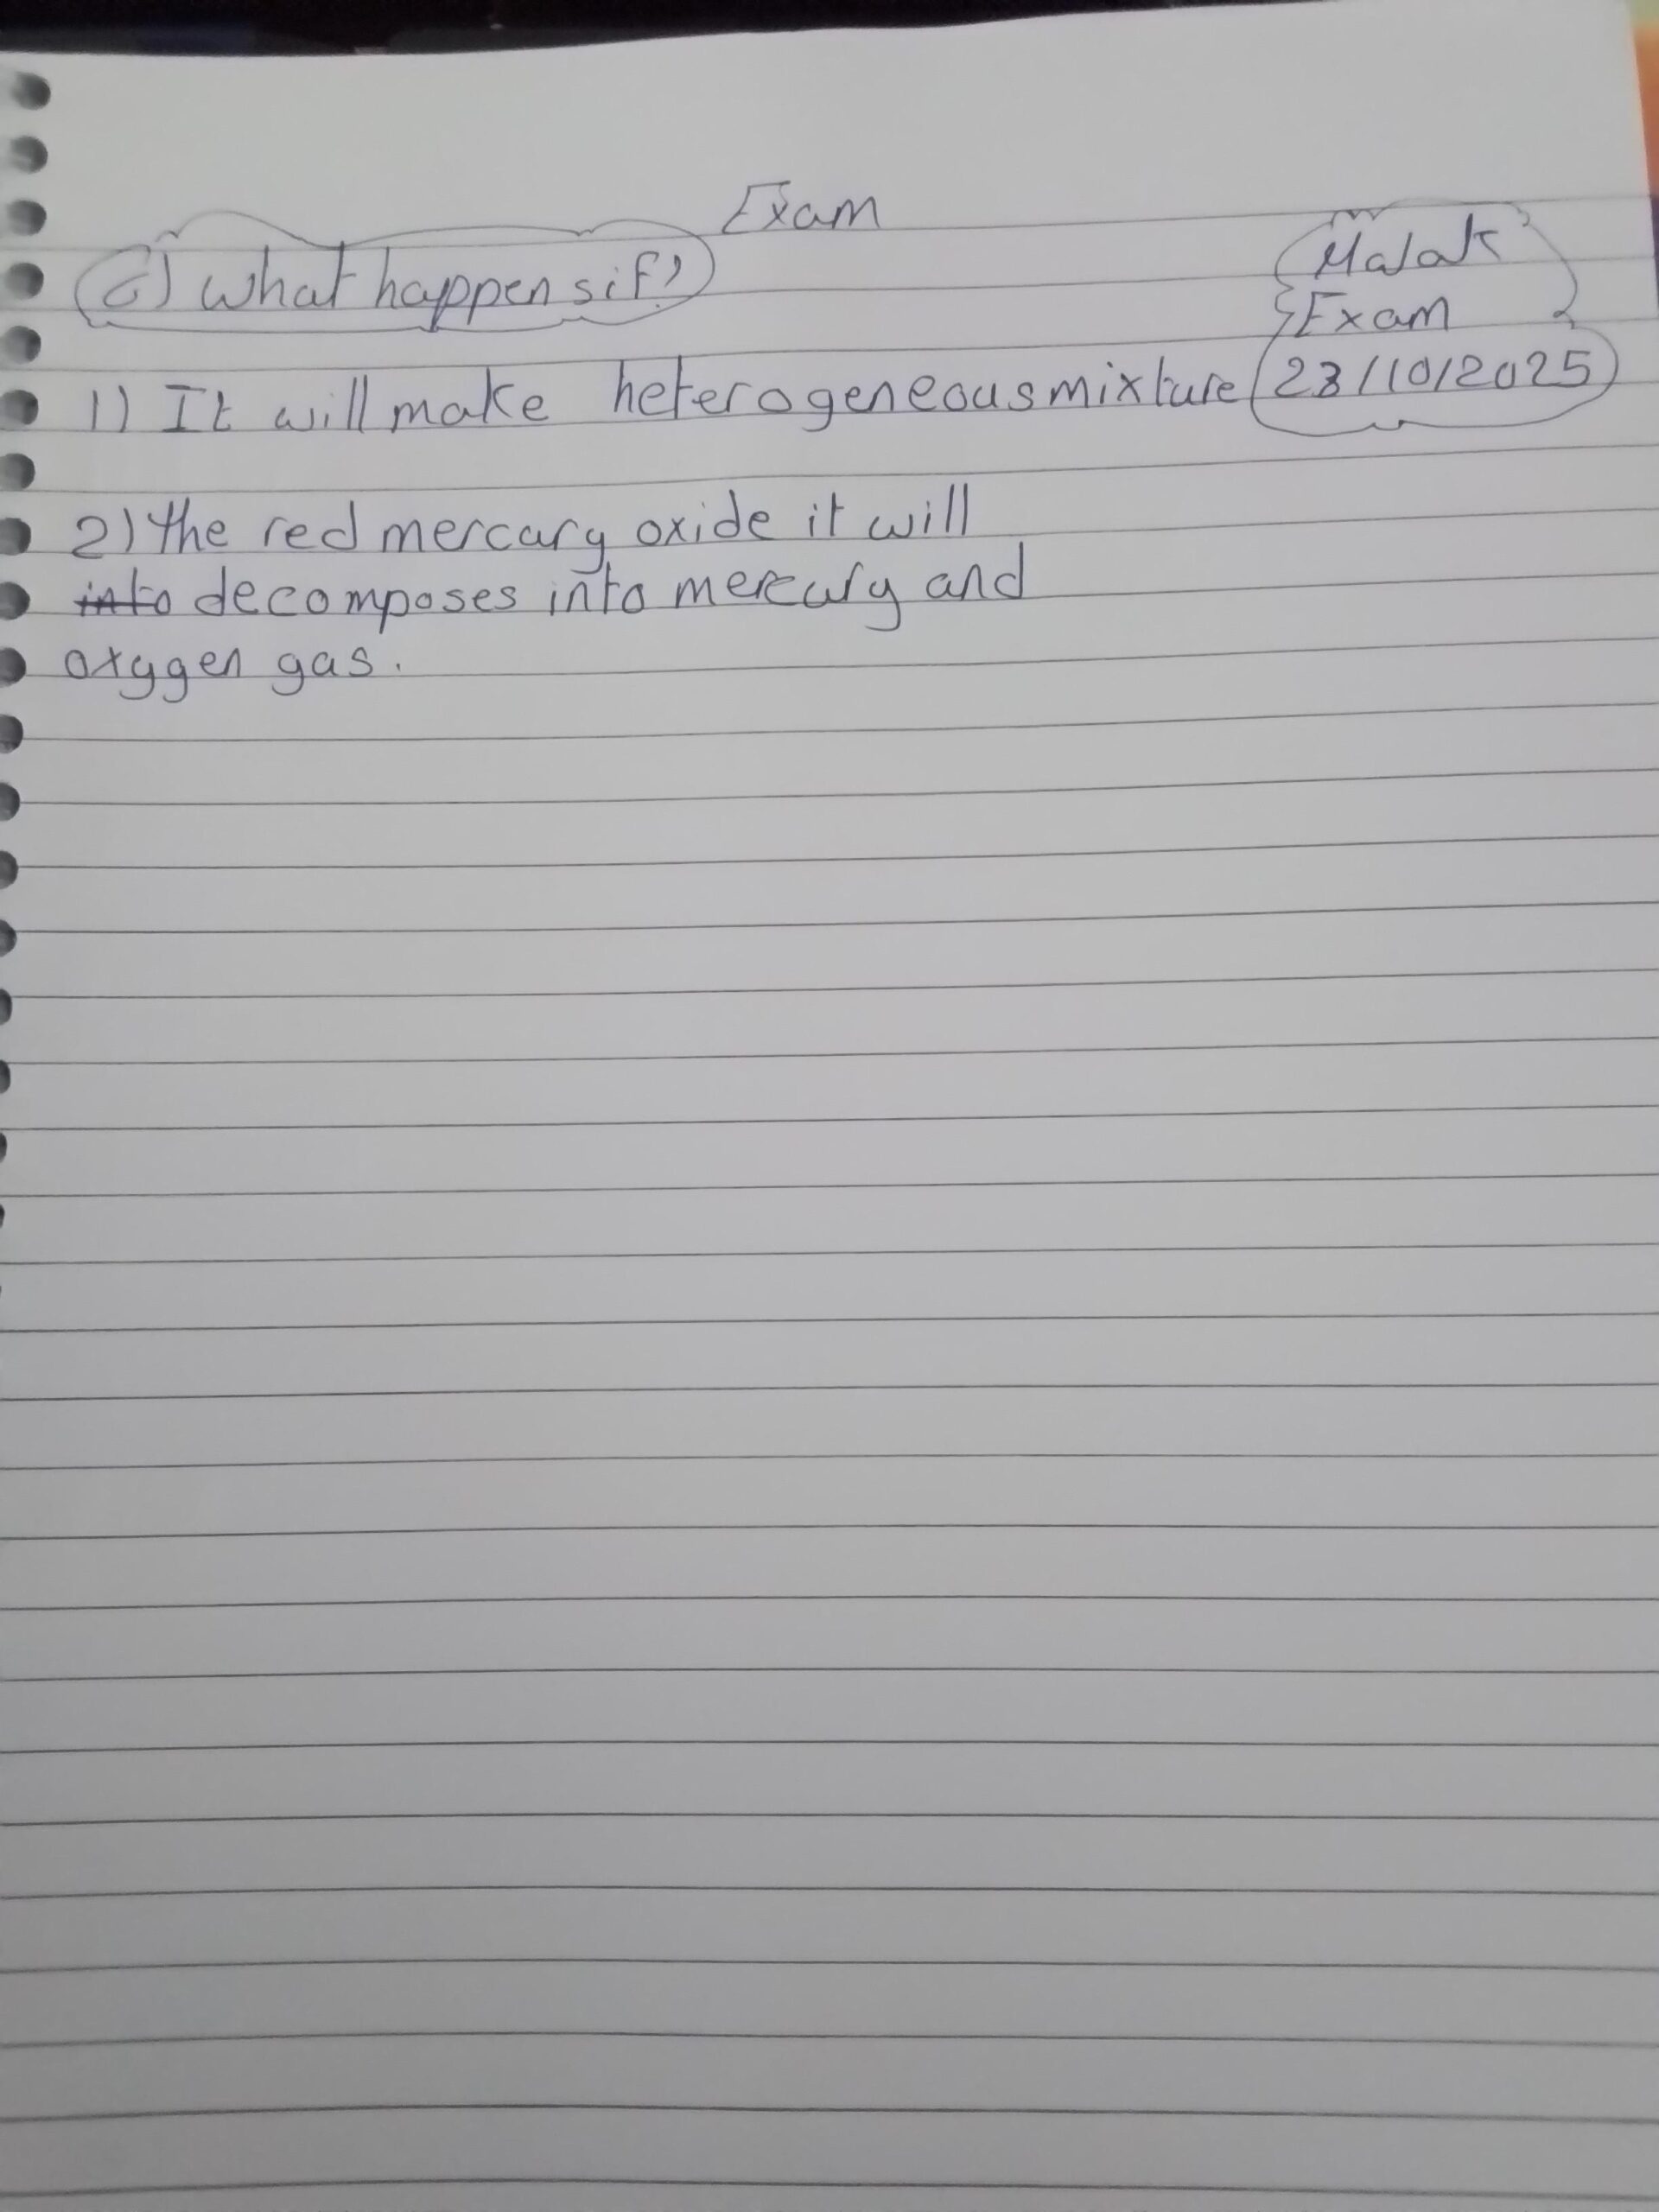 Exam
c) What happens if?
Malak
Exam
1) It will make heterogeneous mixture
23/10/2025
2) the red mercury oxide it will
into decomposes into mercury and
oxygen gas.